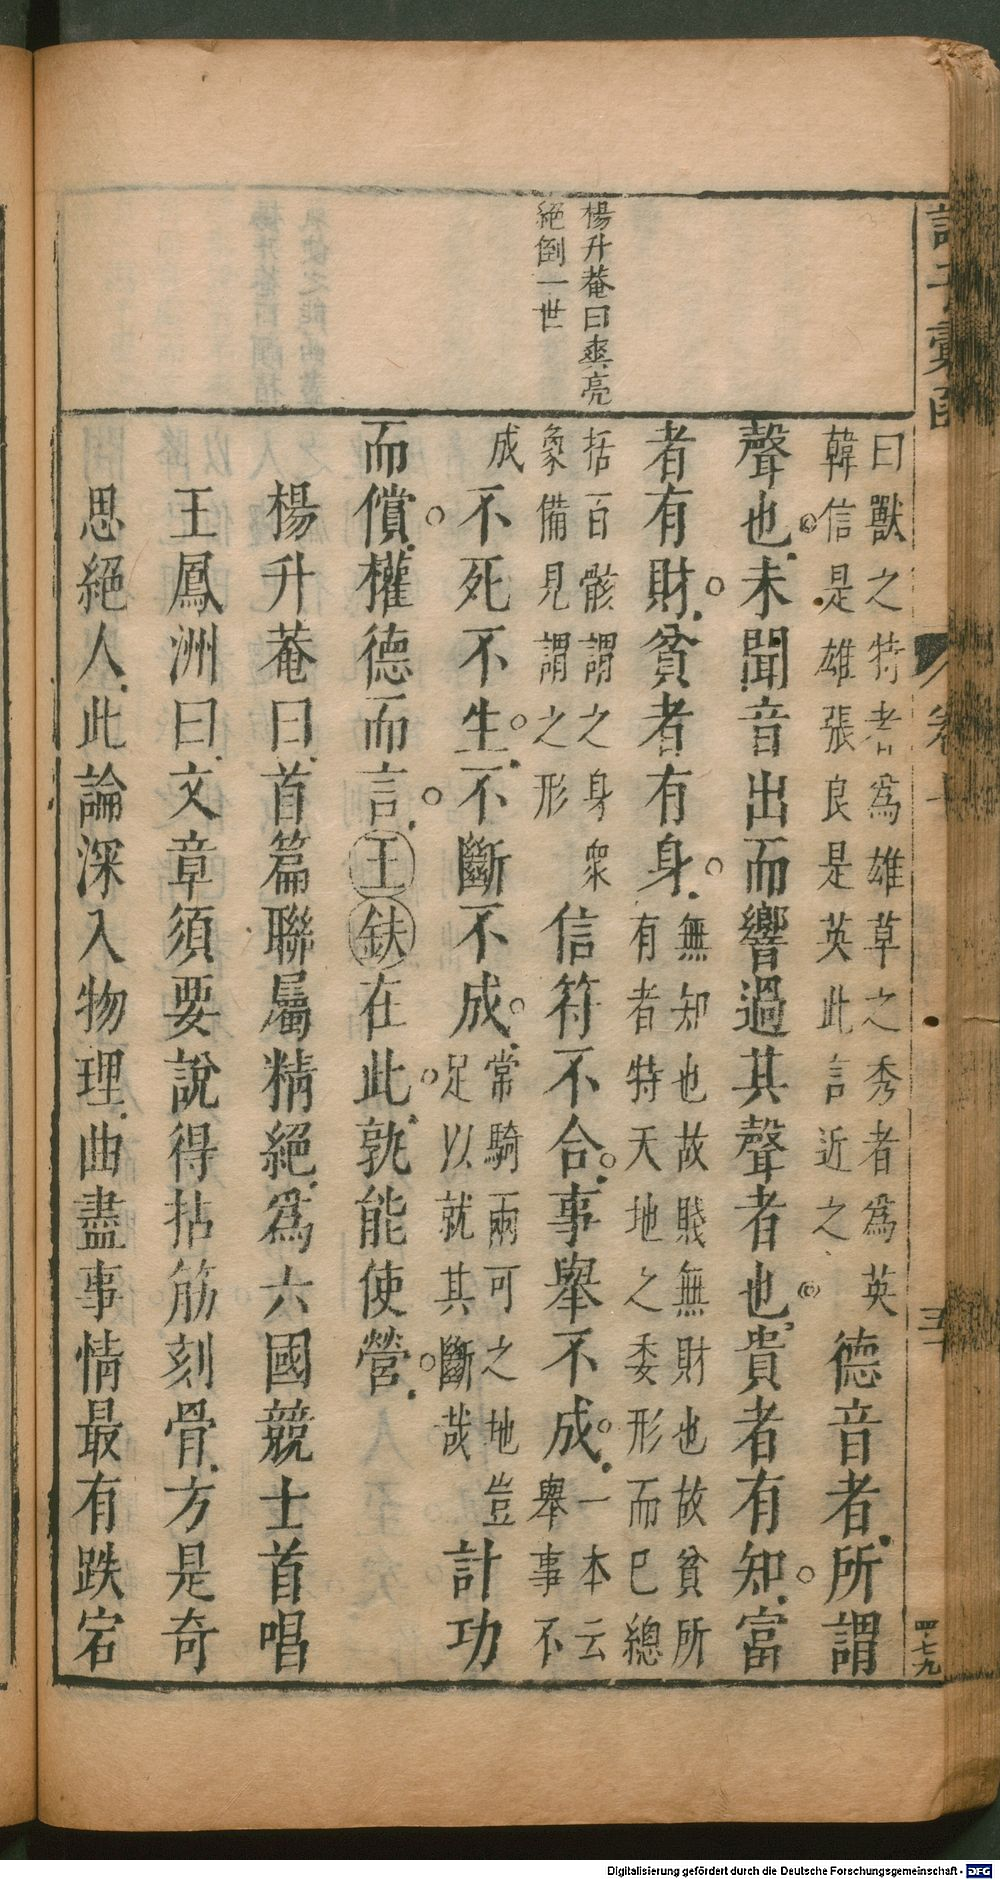 楊升菴曰爽亮
絕倒一世
曰獸之特者爲雄草之秀者爲英
韓信是雄張良是英此言近之
德音者所謂
聲也未聞音出而響過其聲者也貴者有知富
者有財貧者有身
無知也故賤無財也故貧所
有者特天地之委形而已總
括百骸謂之身衆
象備見謂之形
信符不合事舉不成
一本云
舉事不
成
不死不生不斷不成
常騎兩可之地豈
足以就其斷哉
計功
而償權德而言王鈇在此孰能使營
楊升菴曰首篇聯屬精絕爲六國競士首唱
王鳳洲曰文章須要說得拈筋刻骨方是奇
思絕人此論深入物理曲盡事情最有跌宕
卷十
五十
四七九
Digitalisierung gefördert durch die Deutsche Forschungsgemeinschaft - DFG